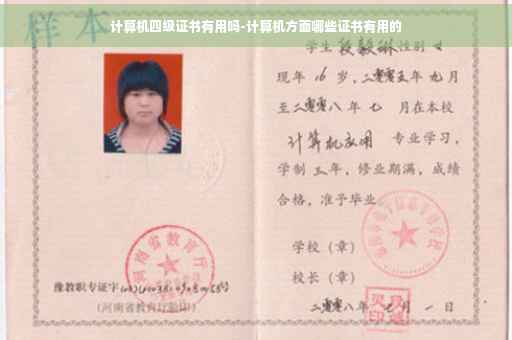 计算机四级证书有用吗-计算机方面哪些证书有用的
样本
学生段毅琳性别女
现年16岁,二零零五年九月
至二零零八年七月在本校
计算机应用 专业学习,
学制三年,修业期满,成绩
合格,准予毕业
学校(章)
校长(章)
二零零八年 月一日
河南省教育厅
豫教职专证字
(河南省教育厅验印)